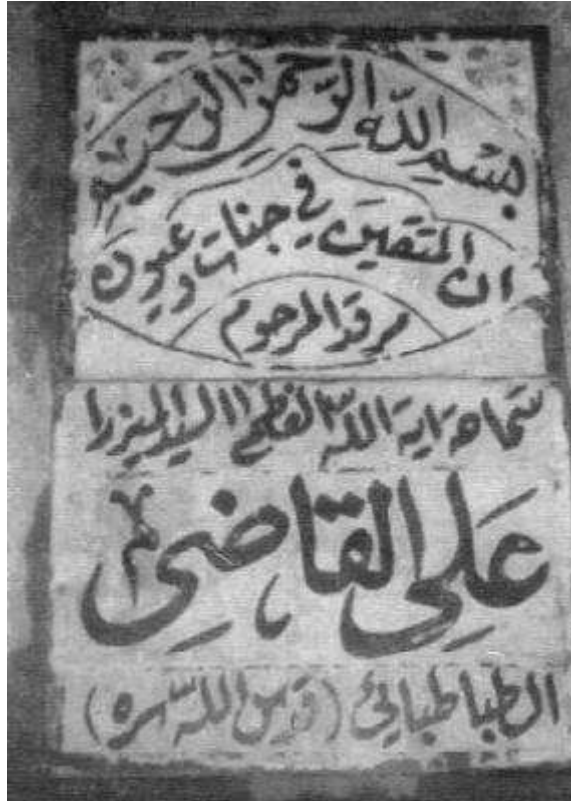 بِسْمِ اللّهِ الرَّحمٰنِ الرَّحيمِ
ان المتقين في جنات وعيون
مرقد المرحوم
سماحة اية اللّه العظمى السيد الميرزا
عَلي القاضي
الطباطبائي (قدس اللّه سره)